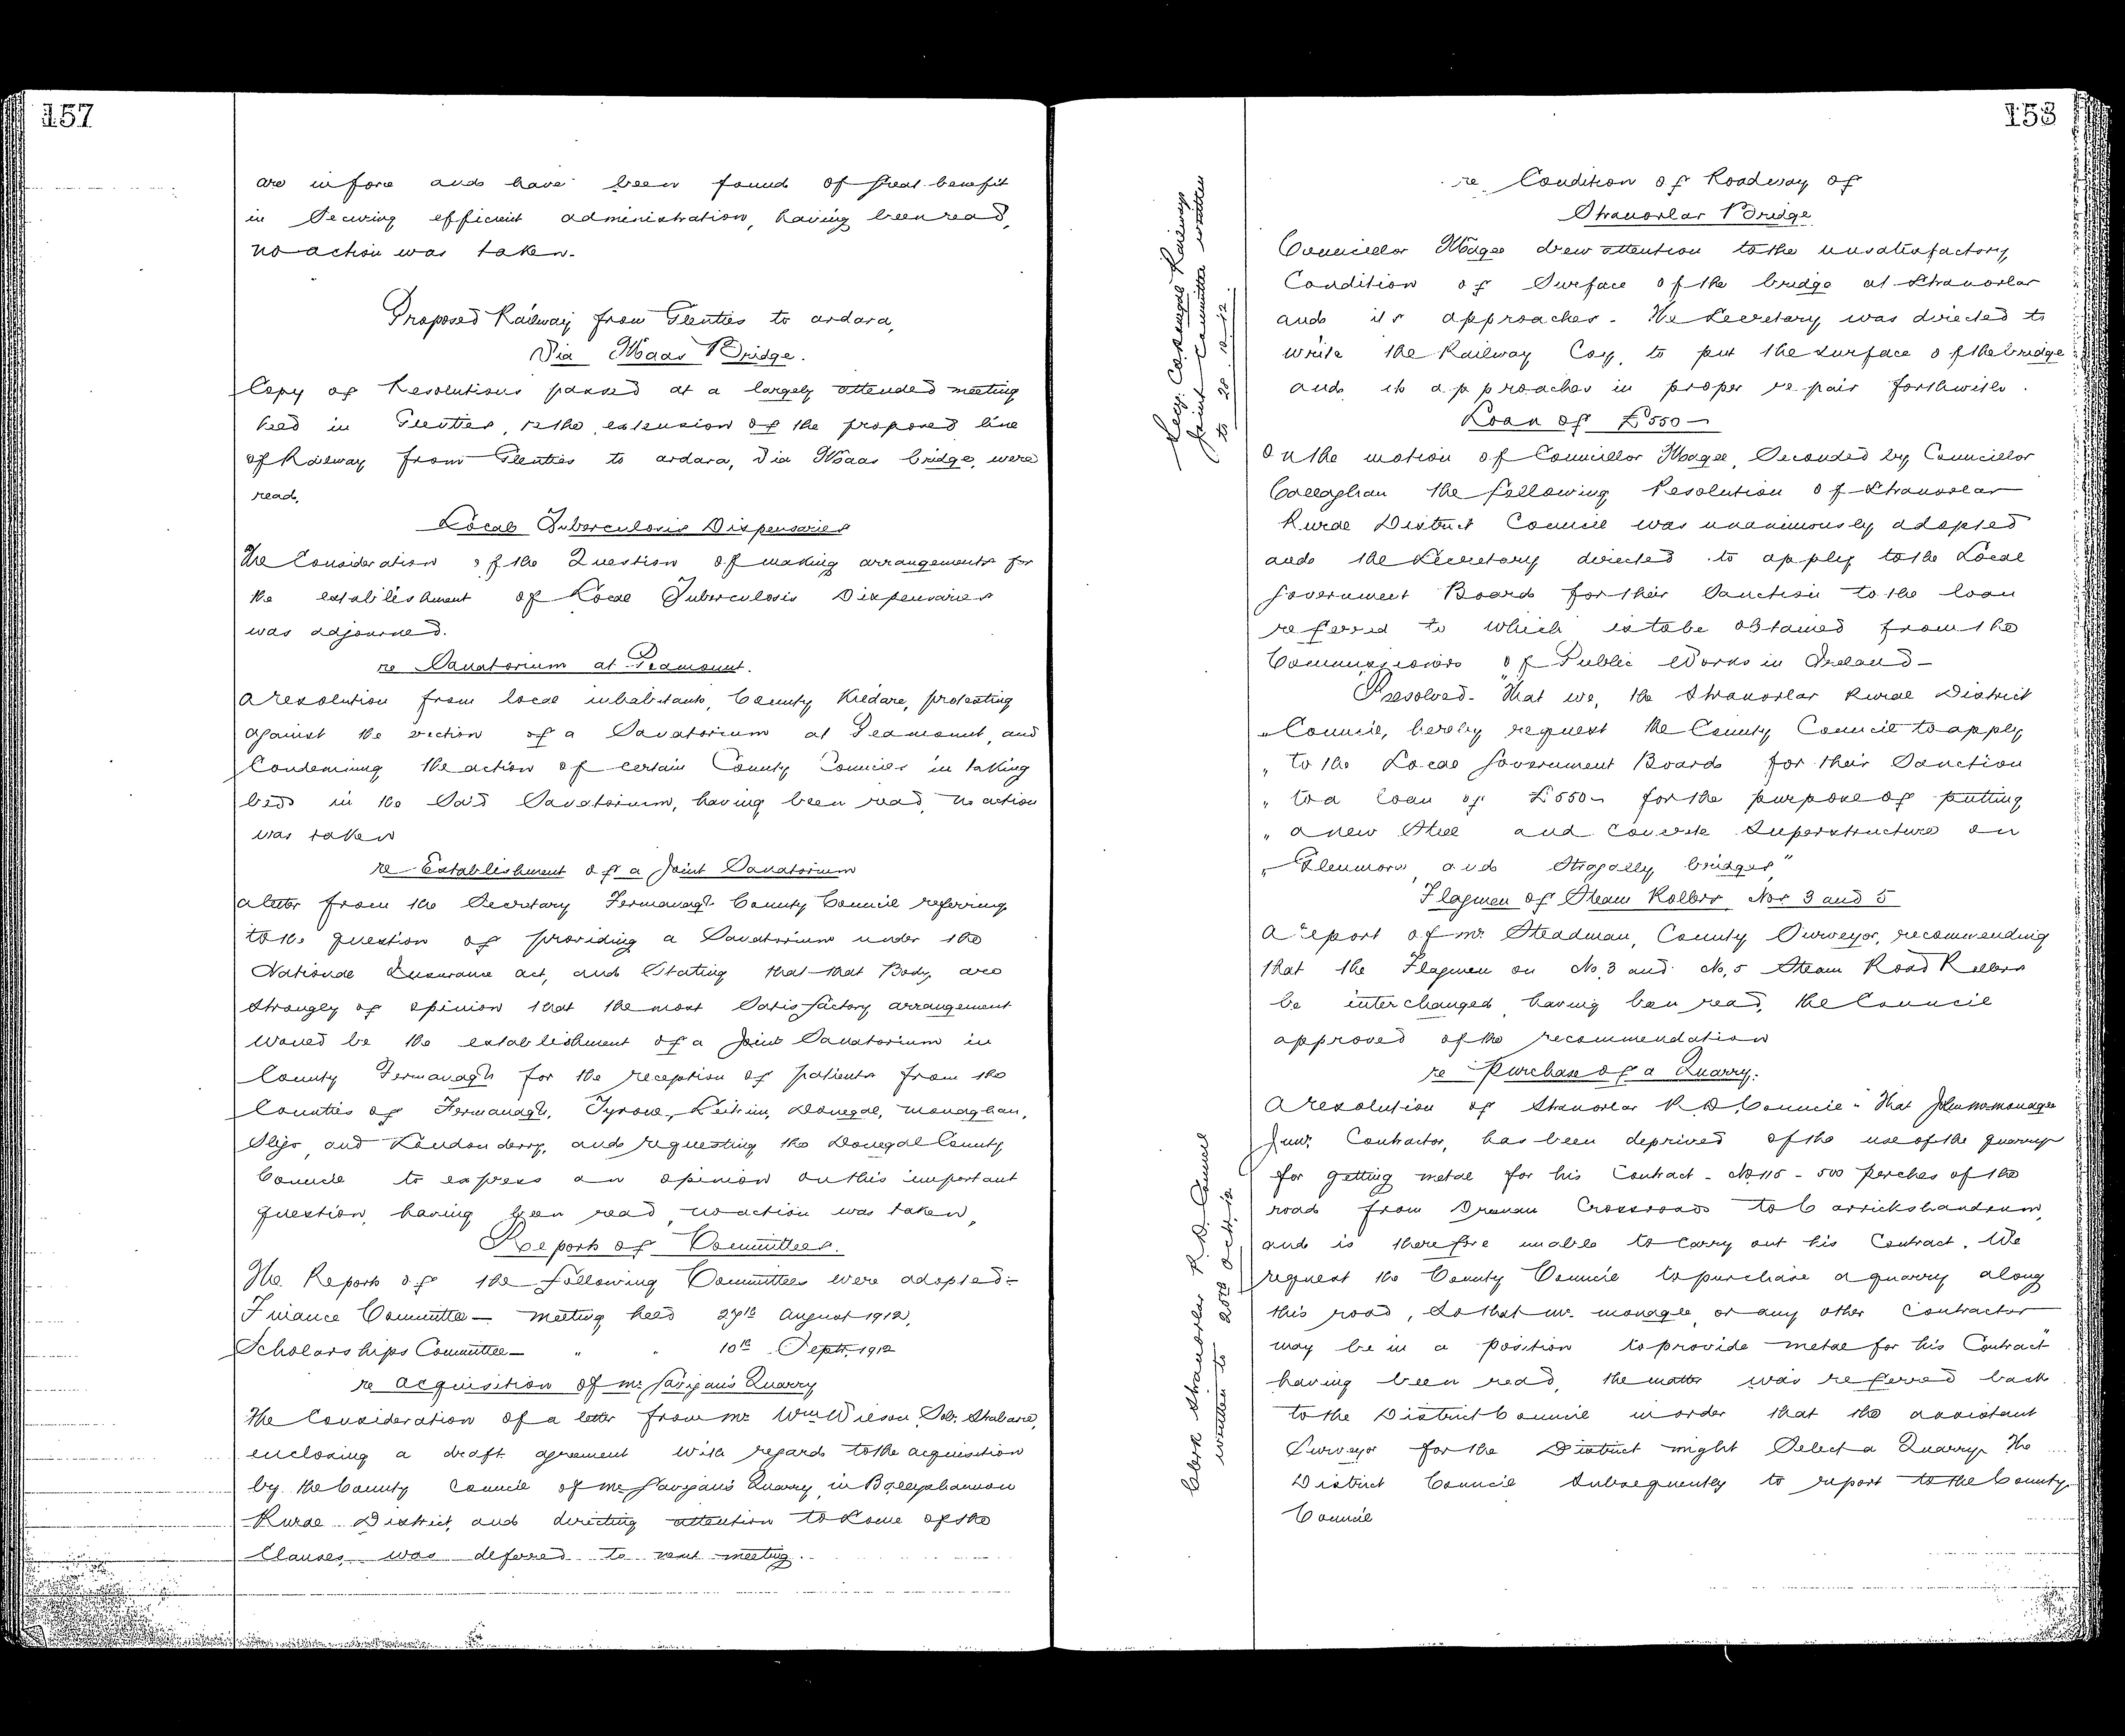 157
are in force and have been found of great benefit
in Securing efficient administration, having been read,
no action was taken.
Proposed Railway from Glenties to ardara,
Via Maas Bridge.
Copy of Resolutions passed at a largely attended meeting
held in Glenties, re the extension of the proposed line
of Railway from Glenties to ardara, Via Maas bridge, were
read.
Local Tuberculosis Dispensaries
The Consideration of the Question of making arrangements for
the establishment of Local Tuberculosis Dispensaries
was adjourned.
re Sanatorium at Peamount.
a resolution from local inhabitants, County Kildare, protesting
against the erection of a Sanatorium at Peamount, and
Condemning the action of certain County Councils in taking
beds in the Said Sanatorium, having been read, no action
was taken
re Establishment of a Joint Sanatorium
a letter from the Secretary Fermanagh County Council referring
to the question of providing a Sanatorium under the
National Insurance act, and Stating that that Body are
Strongly of opinion that the most Satisfactory arrangement
would be the establishment of a Joint Sanatorium in
County Fermanagh for the reception of patients from the
Counties of Fermanagh, Tyrone, Leitrim, Donegal, Monaghan,
Sligo and Londonderry, and requesting the Donegal County
Council to express an opinion on this important
question, having been read, no action was taken,
Reports of Committees.
The Reports of the following Committees were adopted:-
Finance Committee — meeting held 27th August 1912,
Scholarships Committee — " " 10th Septr. 1912
re acquisition of Mr. Gavigan's Quarry
The Consideration of a letter from Mr. Wm Wilson, Solr. Strabane,
enclosing a draft agreement with regard to the acquisition
by the County Council of Mr. Gavigan's Quarry, in Ballyshannon
Rural District, and directing attention to Some of the
Clauses, was deferred to next meeting.
158
re Condition of Roadway of
Stranorlar Bridge
Councillor Magee drew attention to the unsatisfactory
Condition of Surface of the bridge at Stranorlar
and its approaches. The Secretary was directed to
write the Railway Coy. to put the surface of the bridge
and its approaches in proper repair forthwith.
Secy. Railways
Joint Committee written
to 28.10.12.
Loan of £550—
On the motion of Councillor Magee, Seconded by Councillor
Callaghan the following Resolution of Stranorlar
Rural District Council was unanimously adopted
and the Secretary directed to apply to the Local
Government Board for their Sanction to the loan
referred to which is to be obtained from the
Commissioners of Public Works in Ireland—
Resolved- "That we, the Stranorlar Rural District
" Council, hereby request the County Council to apply
" to the Local Government Board for their Sanction
" to a loan of £550— for the purpose of putting
" a new Steel and Concrete Superstructure on
" Glenmore and Stragally bridges"
Flagmen of Steam Rollers Nos 3 and 5
A report of Mr. Steadman, County Surveyor, recommending
that the Flagmen on No. 3 and No. 5 Steam Road Rollers
be interchanged having been read, the Council
approved of the recommendation
re Purchase of a Quarry.
A resolution of Stranorlar R.D. Council "That John McMonagle
Junr. Contractor, has been deprived of the use of the quarry
for getting metal for his Contract - No 115 - 500 perches of the
road from Crossroads to Carrickshandrum,
and is therefore unable to carry out his Contract. We
request the County Council to purchase a quarry along
this road, So that Mr. monagle or any other Contractor
may be in a position to provide metal for his Contract"
having been read, the matter was referred back
to the District Council in order that the assistant
Surveyor for the District might Select a Quarry. The
District Council Subsequently to report to the County
Council
Clerk Stranorlar R.D. Council
written to 28th Oct. 12